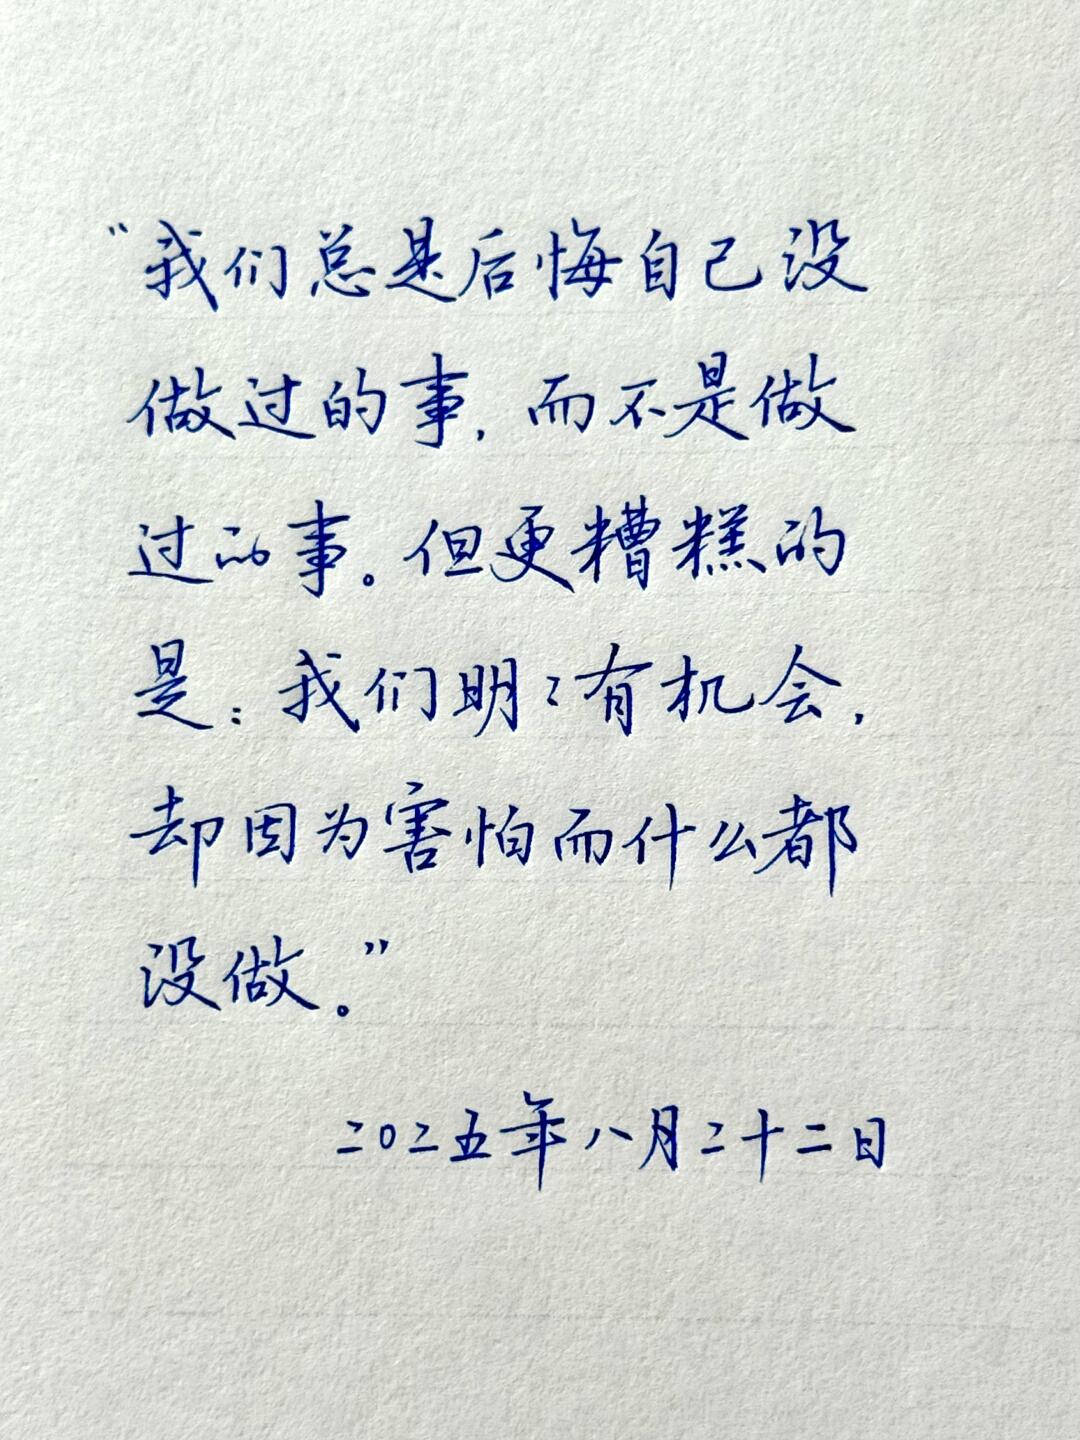 “我们总是后悔自己没
做过的事，而不是做
过的事。但更糟糕的
是：我们明〻有机会，
却因为害怕而什么都
没做。”
二〇二五年八月二十二日